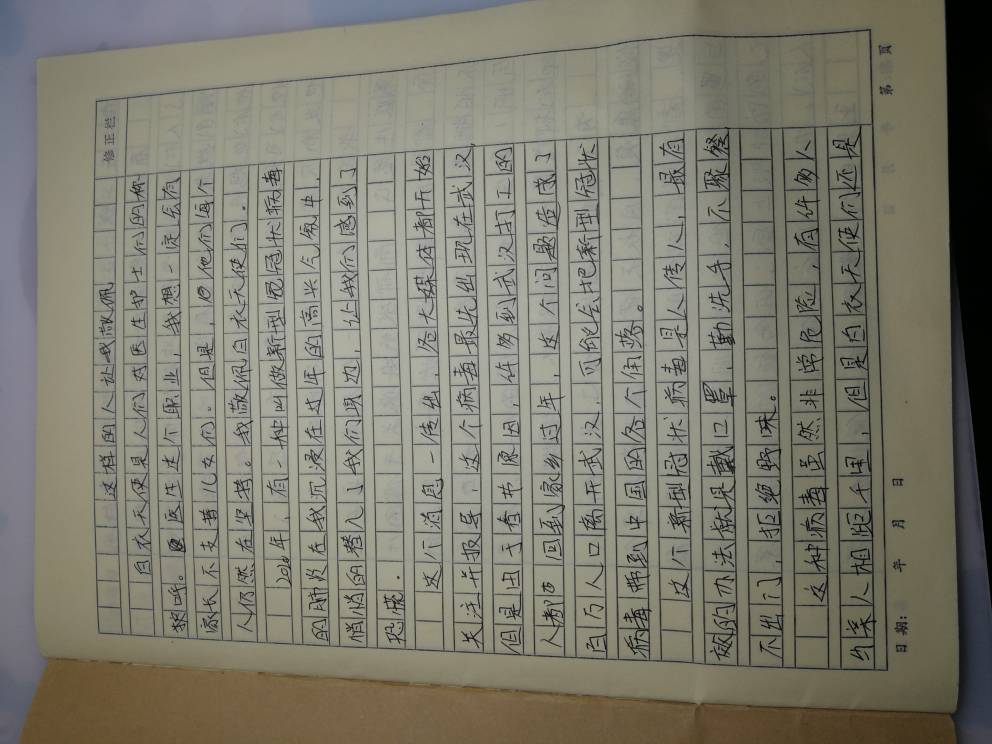 修正栏
这样的人让我敬佩
白衣天使是人们对医生护士们的称
呼。医生这个职业，我想一定会有
家长不支持儿女们。但是，他们每个
人仍然在坚持。我敬佩白衣天使们。
2020年，有一种叫做新型冠状病毒
的肺炎在我沉浸在过年的高兴气氛中，
悄悄的潜入了我们身边，让我们感到了
恐慌。
这个消息一传出，各大媒体都开始
关注并报导，这个病毒最先出现在武汉，
但是由于春节原因，许多到武汉打工的
人都回到家乡过年，这个问题造成了
百万人口离开武汉，可能会把新型冠状
病毒带到中国的各个角落。
这个新型冠状病毒是人传人，最有
效的办法就是戴口罩，勤洗手，不聚餐
不出门，拒绝野味。
这种病毒虽然非常危险，有许多人
与亲人相距千里，但是白衣天使们还是
日期： 年 月 日
第 页